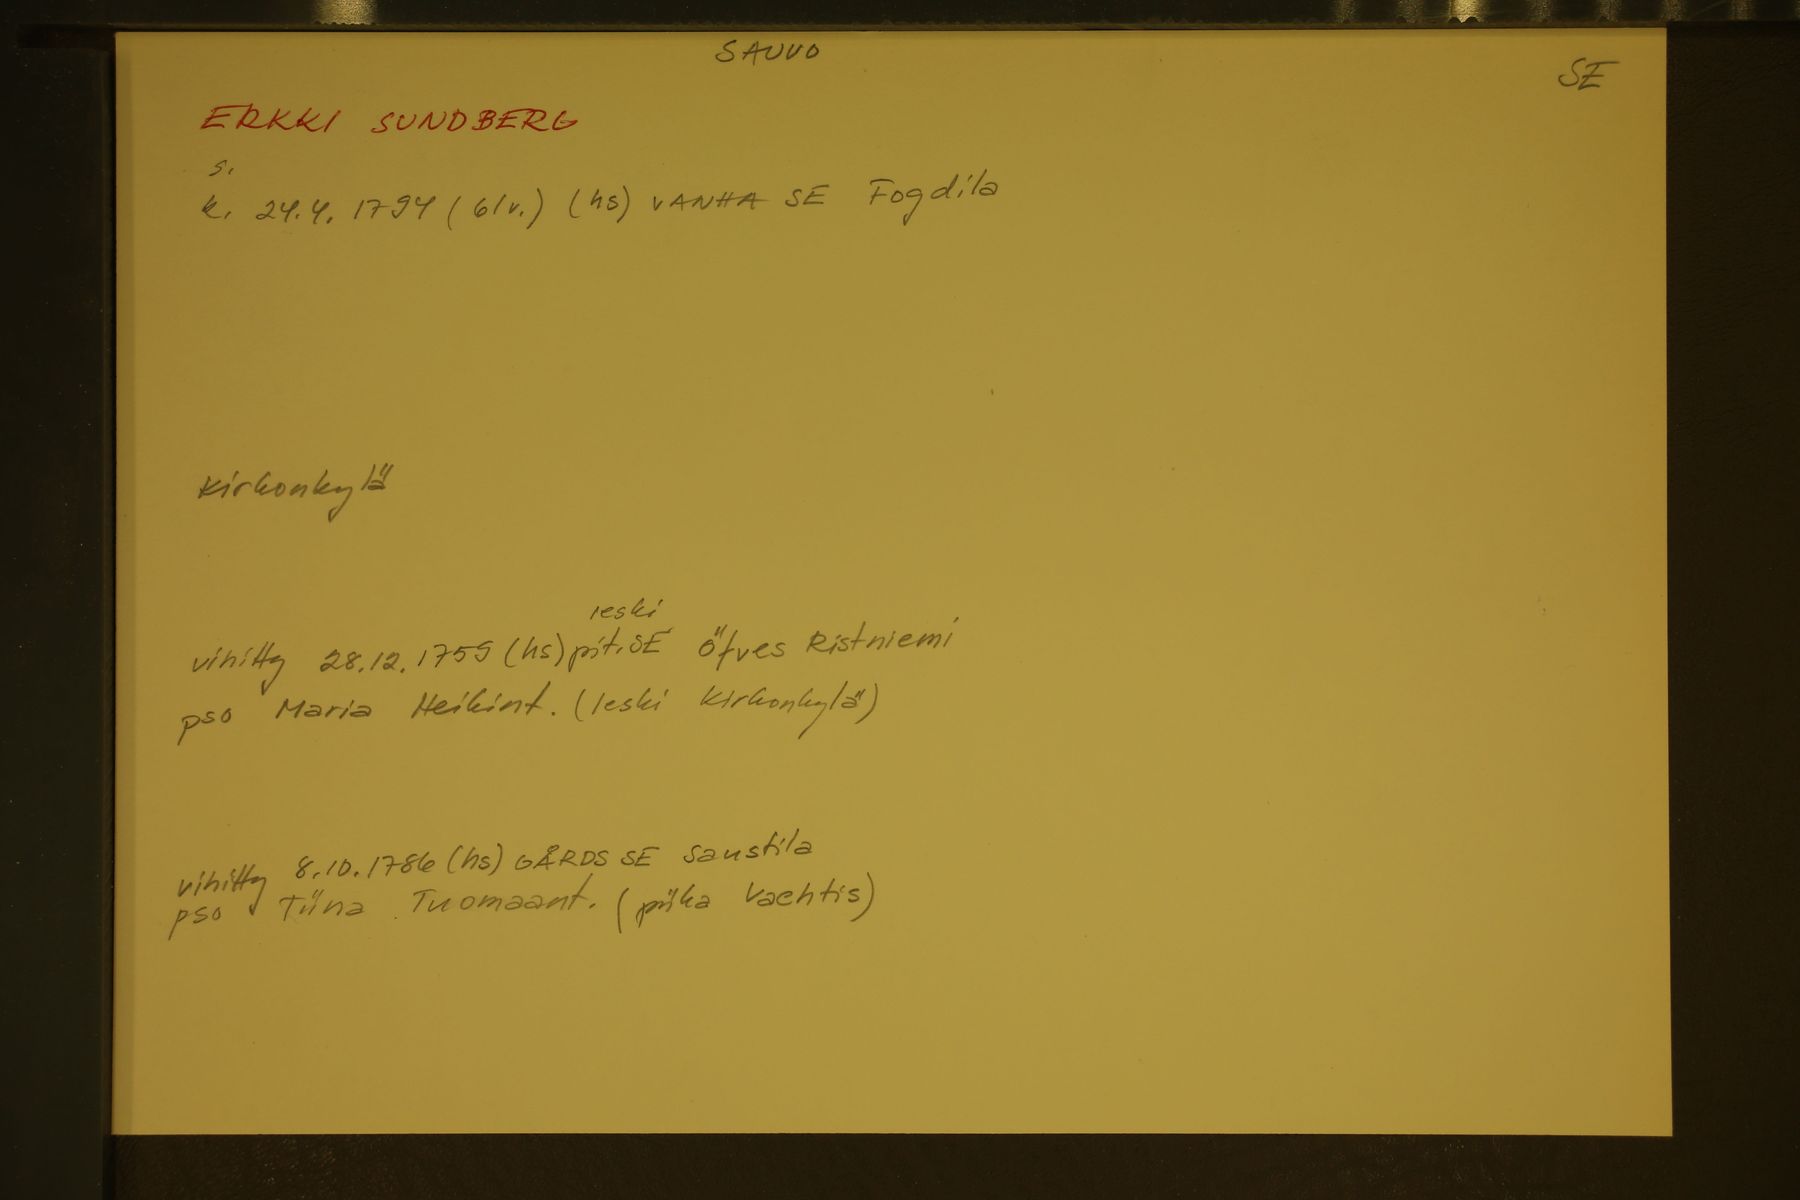 SAUVO
SE
ERKKI SUNDBERG
s.
k. 24.4. 1794 (61v.) (hs) VANHA SE Fogdila
Kirkonkylä
leski
vihitty 28.12.1759 (hs) pit.SE Öfves Ristniemi
pso Maria Heikint. (leski Kirkonkylä)
vihitty 8.10.1786 (hs) GÅRDS SE Saustila
pso Tiina Tuomaant. (piika Vachtis)